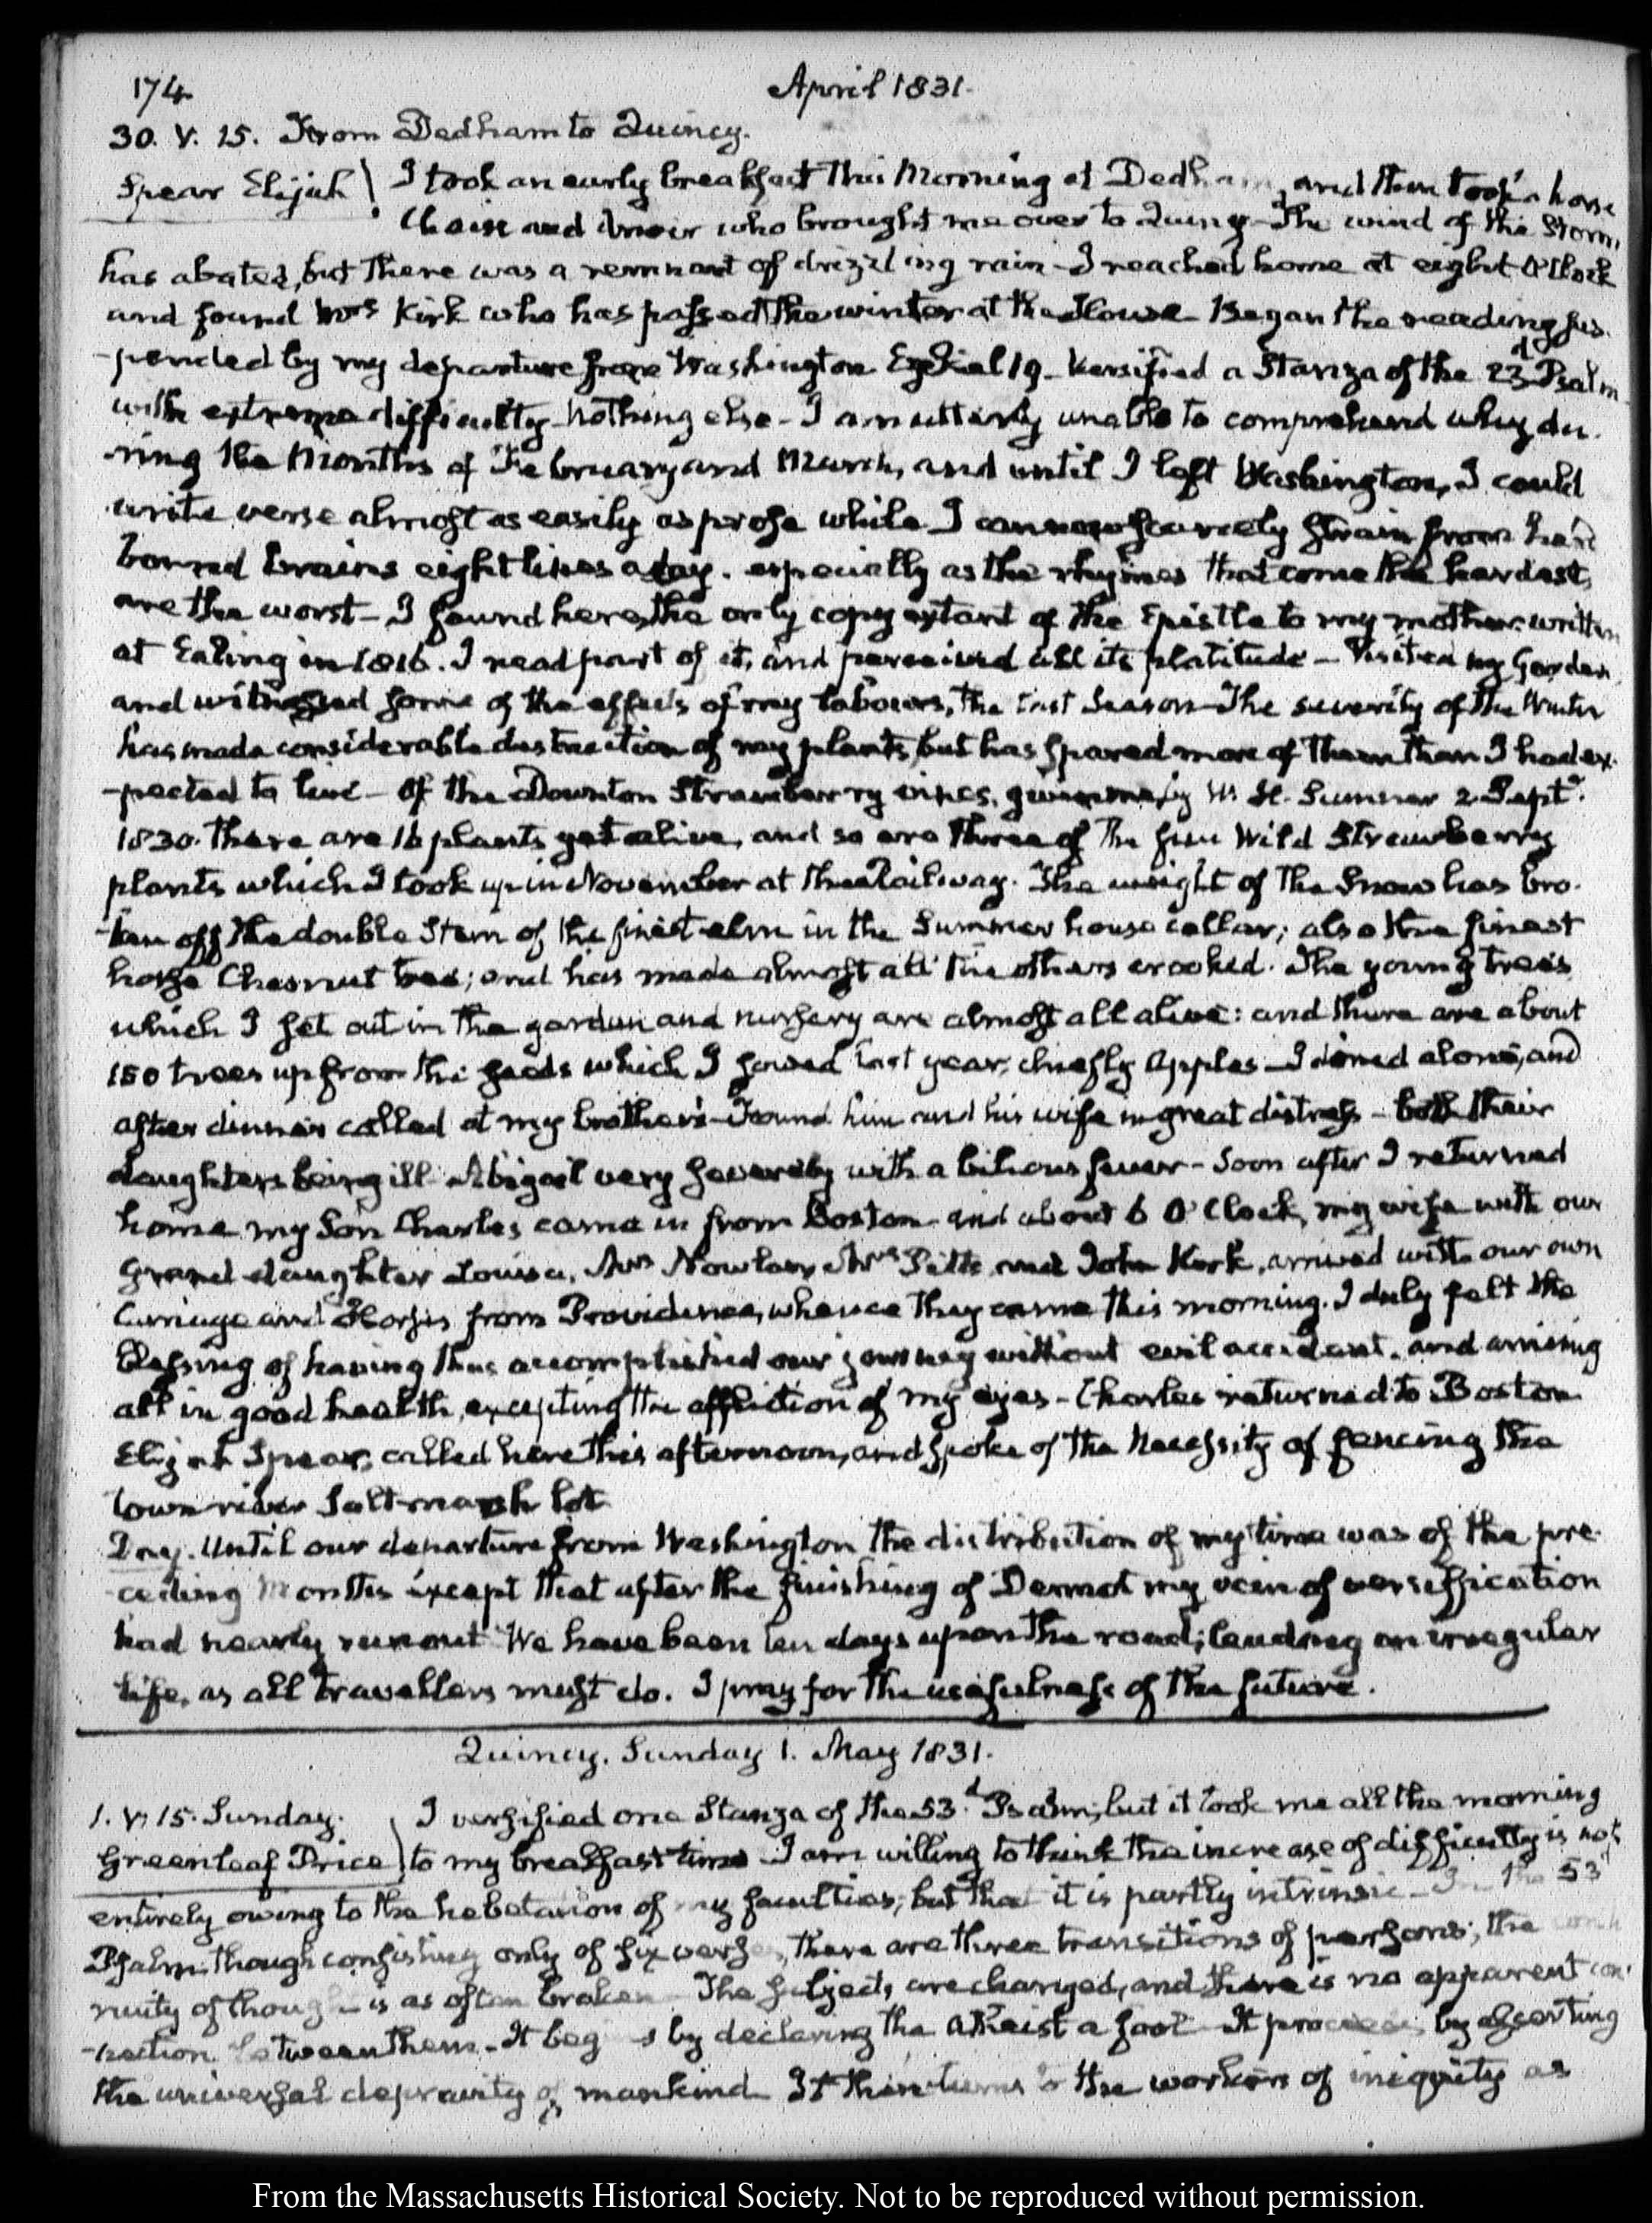 174
April 1831.
30. V. 15. From Dedham to Quincy.
Spear Elijah
I took an early breakfast this Morning at Dedham, and then took a horse
Chaise and driver who brought me over to Quincy. The wind of the Storm,
has abated, but there was a remnant of drizzling rain - I reached home at eight O'Clock
and found Mrs Kirk who has passed the winter at the House. Began the reading sus-
-pended by my departure from Washington Ezekiel 19. Versified a Stanza of the 23d Psalm
with extreme difficulty. Nothing else - I am utterly unable to comprehend why du-
-ring the Months of February and March, and until I left Washington, I could
write verse almost as easily as prose while I can now scarcely strain from hard
bound brains eight lines a day. especially as the rhymes that come the hardest,
are the worst - I found here, the only copy extant of the Epistle to my mother written
at Ealing in 1816. I read part of it, and perceived all its platitude - Visited my Garden
and witnessed some of the effects of my labours, the last Season The severity of the Winter
has made considerable destruction of my plants, but has spared more of them than I had ex-
-pected to live - Of the Downton Strawberry vines, given me by W. H. Sumner 2 Septr.
1830. there are 16 plants yet alive, and so are three of the five Wild Strawberry
plants which I took up in November at the Railway. The weight of the Snow has bro-
-ken off the double Stem of the finest elm in the Summer house cellar; also the finest
horse Chesnut tree; and has made almost all the others crooked. The young trees
which I set out in the garden and nursery are almost all alive: and there are about
150 trees up from the seeds which I sowed last year, chiefly Apples - I dined alone, and
after dinner called at my brother's - Found him and his wife in great distress - both their
daughters being ill Abigail very severely with a bilious fever - Soon after I returned
home my Son Charles came in from Boston and about 6 O'Clock, my wife with our
Grand daughter Louisa, Mrs Nowlan, Mrs Pitts and John Kirk, arrived with our own
Carriage and Horses from Providence, whence they came this morning. I duly felt the
Blessing of having thus accomplished our journey without evil accident, and arriving
all in good health, excepting the affliction of my eyes - Charles returned to Boston
Elijah Spear, called here this afternoon, and spoke of the Necessity of fencing the
town river Salt-marsh lot
Day. Until our departure from Washington the distribution of my time was of the pre-
-ceding Months except that after the finishing of Dermot my vein of versification
had nearly run out We have been ten days upon the road; leading an irregular
life, as all travellers must do. I pray for the usefulness of the future.
Quincy. Sunday 1. May 1831.
1. V. 15. Sunday.
Greenleaf Price
I versified one Stanza of the 53.d Psalm; but it took me all the morning
to my breakfast time I am willing to think the increase of difficulty is not
entirely owing to the hebetation of my faculties; but that it is partly intrinsic - In the 53d
Psalm though consisting only of six verses, there are three transitions of persons; the conti-
nuity of thought is as often broken The subjects are changed, and there is no apparent con-
-nection between them. It begins by declaring the Atheist a fool It proceeds by asserting
the universal depravity of mankind It then turns to the workers of iniquity as
From the Massachusetts Historical Society. Not to be reproduced without permission.